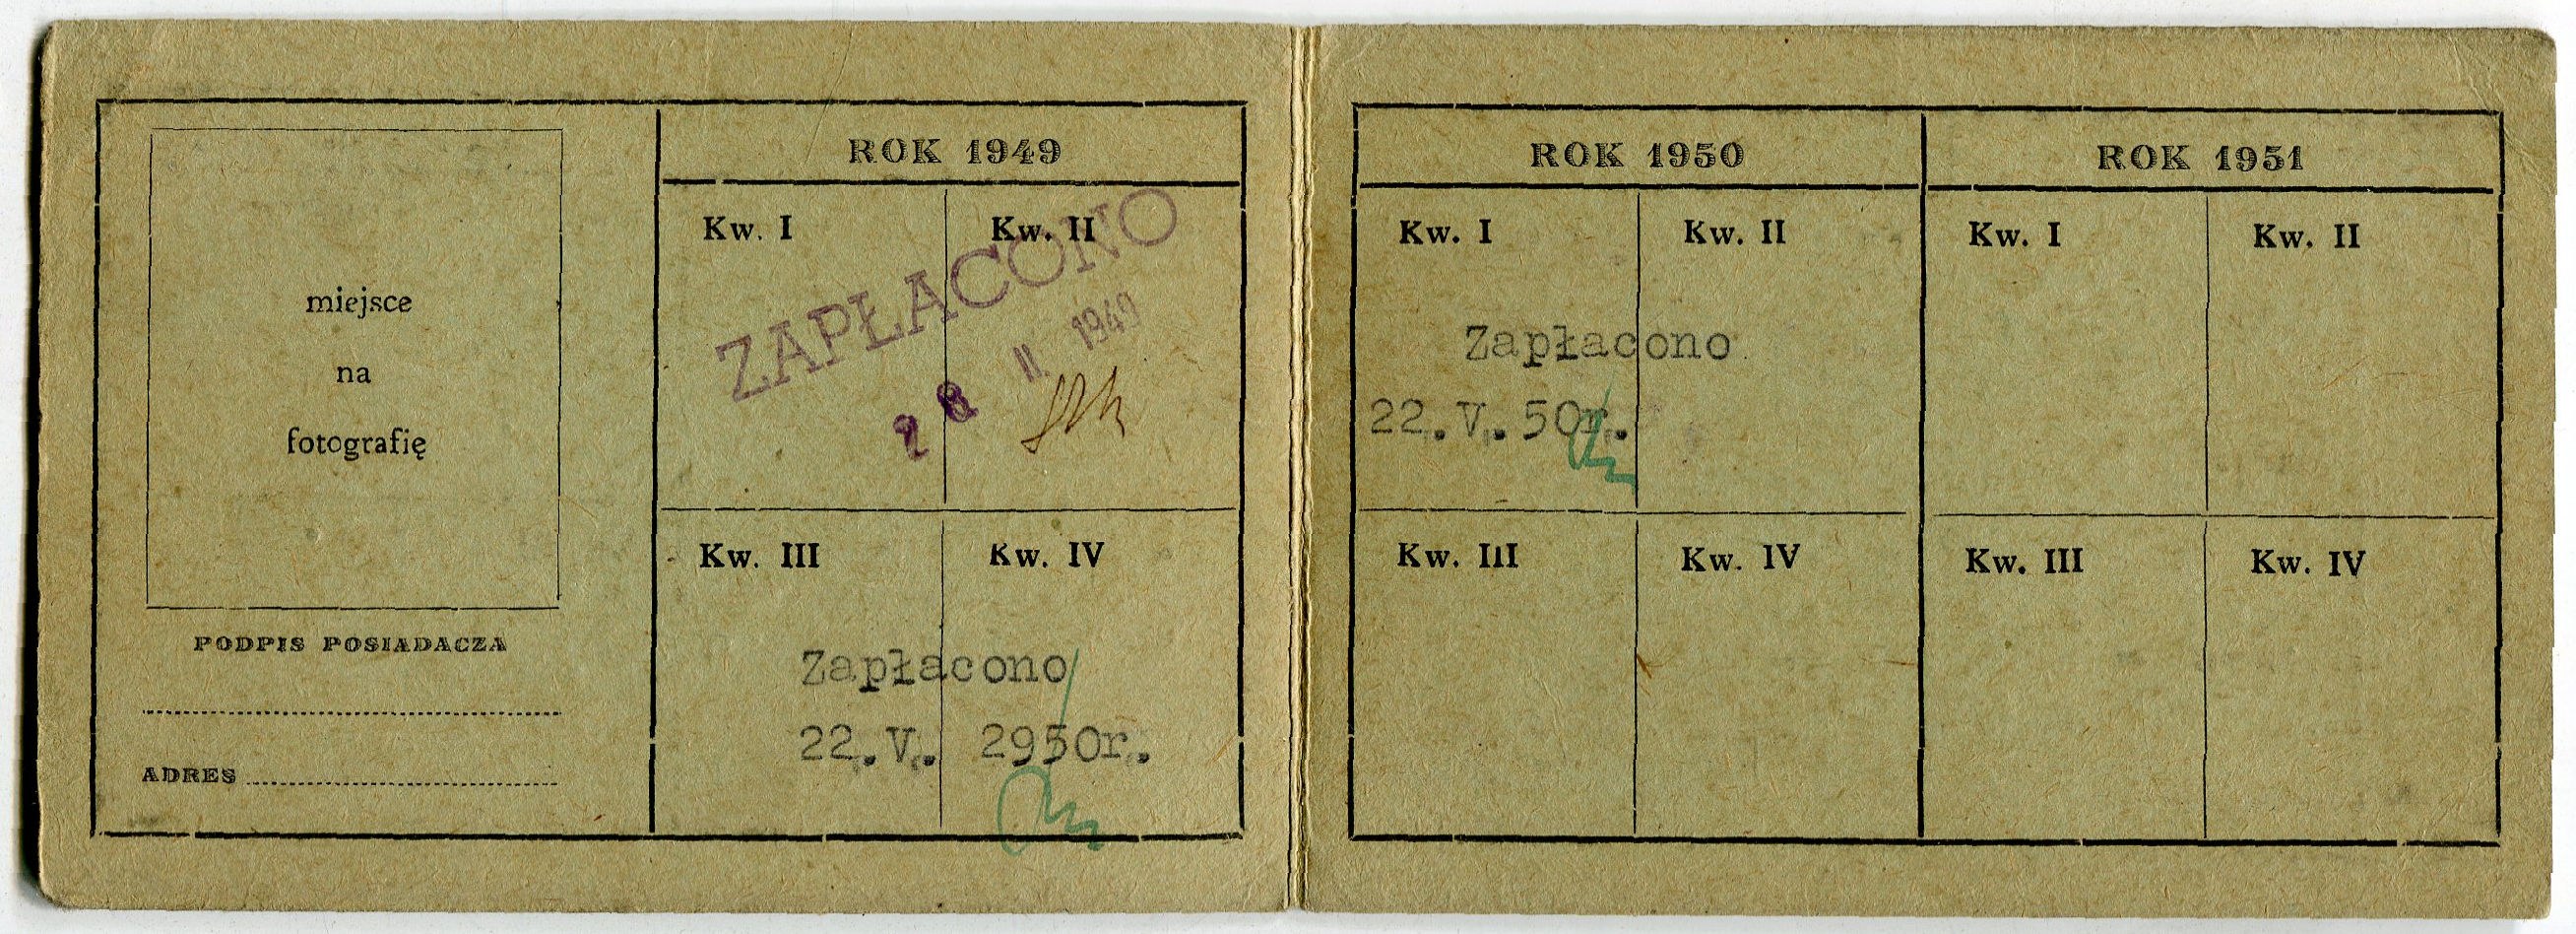 miejsce
na
fotografię
PODPIS POSIADACZA
ADRES
ROK 1949
Kw. I
Kw. II
ZAPŁACONO
28 II. 1949
Kw. III
Kw. IV
Zapłacono
22.V. 2950r.
ROK 1950
Kw. I
Kw. II
Zapłacono
22.V.50r.
Kw. III
Kw. IV
ROK 1951
Kw. I
Kw. II
Kw. III
Kw. IV